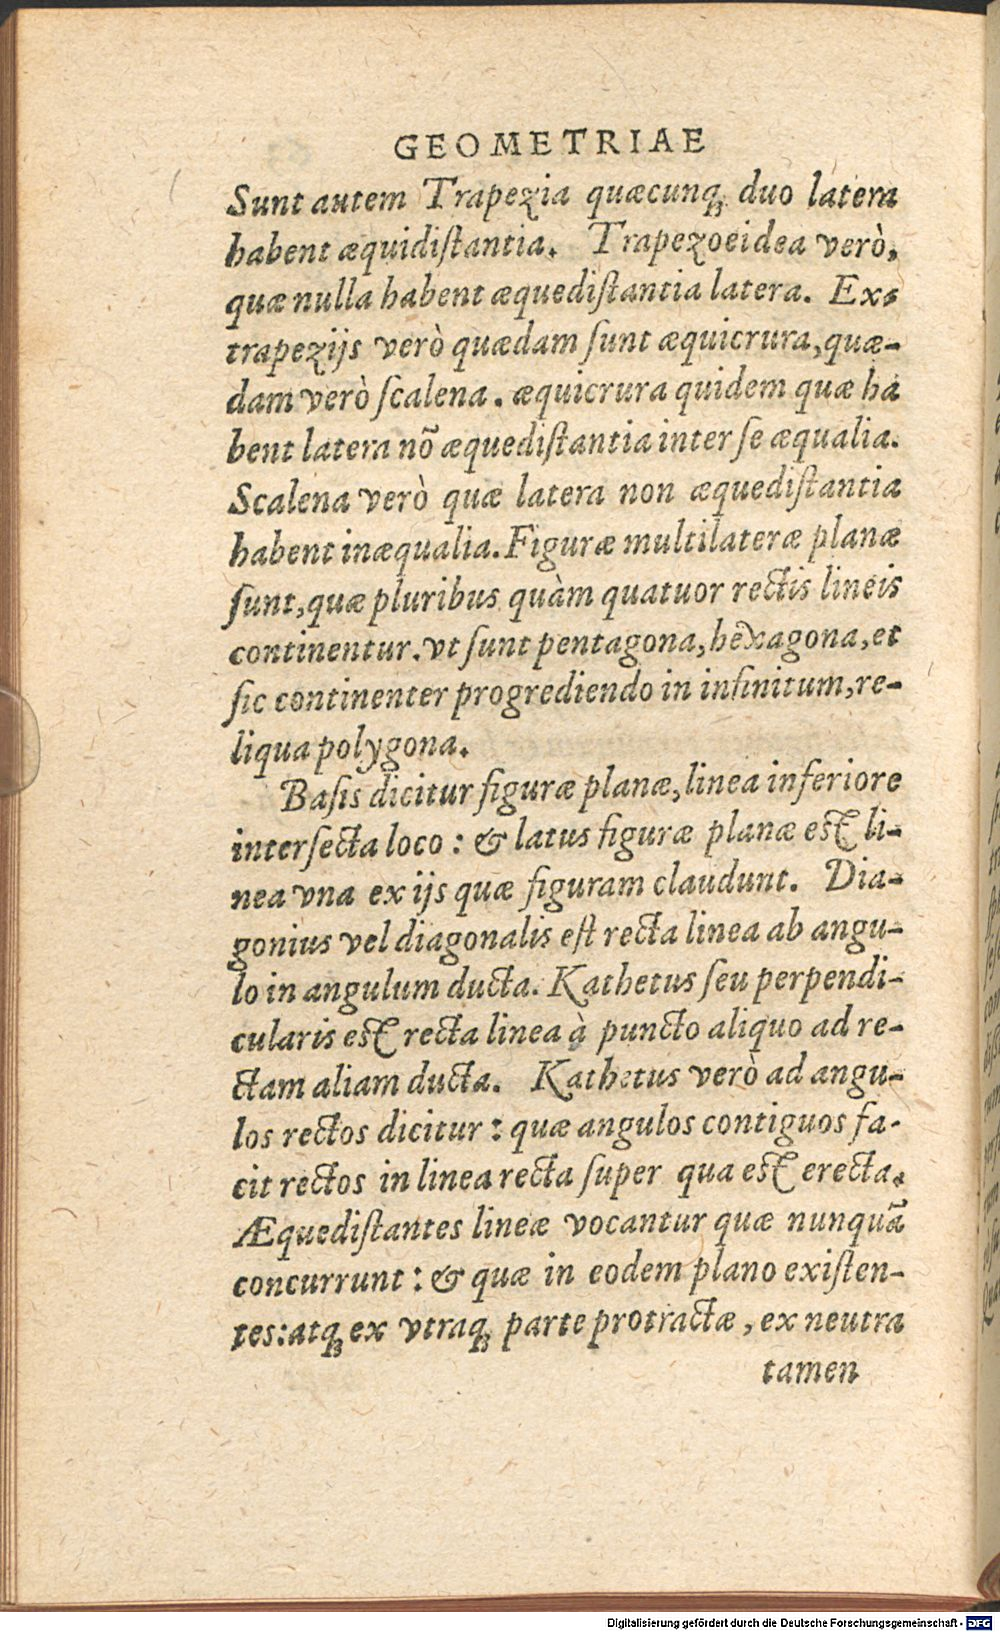 GEOMETRIAE
Sunt autem Trapezia quæcunqꝫ duo latera
habent æquidiſtantia. Trapezoeidea verò,
quæ nulla habent æquediſtantia latera. Ex
trapezijs verò quædam ſunt æquicrura, quæ-
dam verò ſcalena. æquicrura quidem quæ ha
bent latera nõ æquediſtantia inter ſe æqualia.
Scalena verò quæ latera non æquediſtantia
habent inæqualia. Figuræ multilateræ planæ
ſunt, quæ pluribus quàm quatuor rectis lineis
continentur. vt ſunt pentagona, hexagona, et
ſic continenter progrediendo in infinitum, re-
liqua polygona.
Baſis dicitur figuræ planæ, linea inferiore
interſecta loco: & latus figuræ planæ est li-
nea vna ex ijs quæ figuram claudunt. Dia-
gonius vel diagonalis eſt recta linea ab angu-
lo in angulum ducta. Kathetus ſeu perpendi-
cularis est recta linea à puncto aliquo ad re-
ctam aliam ducta. Kathetus verò ad angu-
los rectos dicitur: quæ angulos contiguos fa-
cit rectos in linea recta ſuper qua est erecta.
Æquediſtantes lineæ vocantur quæ nunquã
concurrunt: & quæ in eodem plano exiſten-
tes: atqꝫ ex vtraqꝫ parte protractæ, ex neutra
tamen
Digitalisierung gefördert durch die Deutsche Forschungsgemeinschaft - DFG